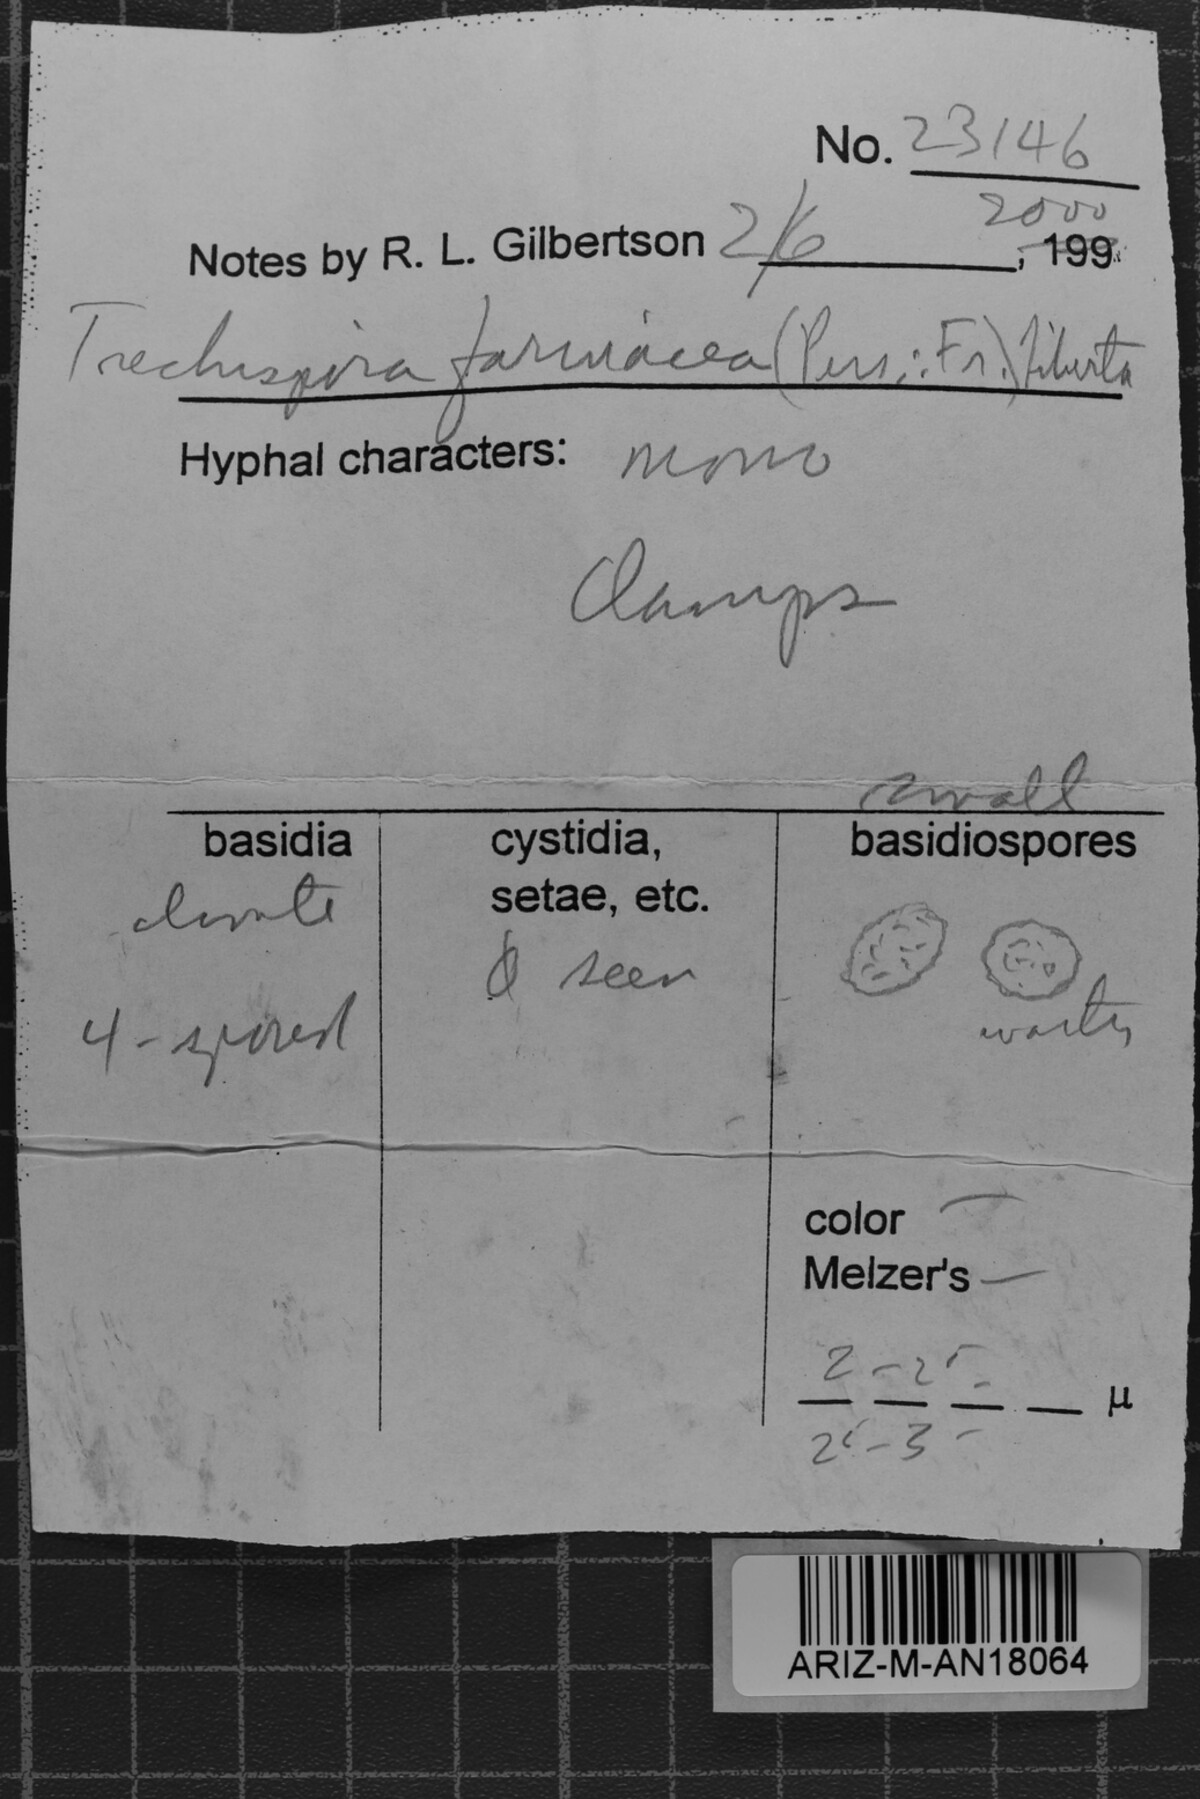 No. 23146
2000
Notes by R. L. Gilbertson 2/6, 199
Trechispora farinacea (Pers.: Fr.) Liberta
Hyphal characters: mono
Clamps
small
basidia
cystidia, setae, etc.
basidiospores
clavate
4-spored
Ø seen
warty
color —
Melzer's —
2 - 25 -
μ
25 - 3 -
ARIZ-M-AN18064